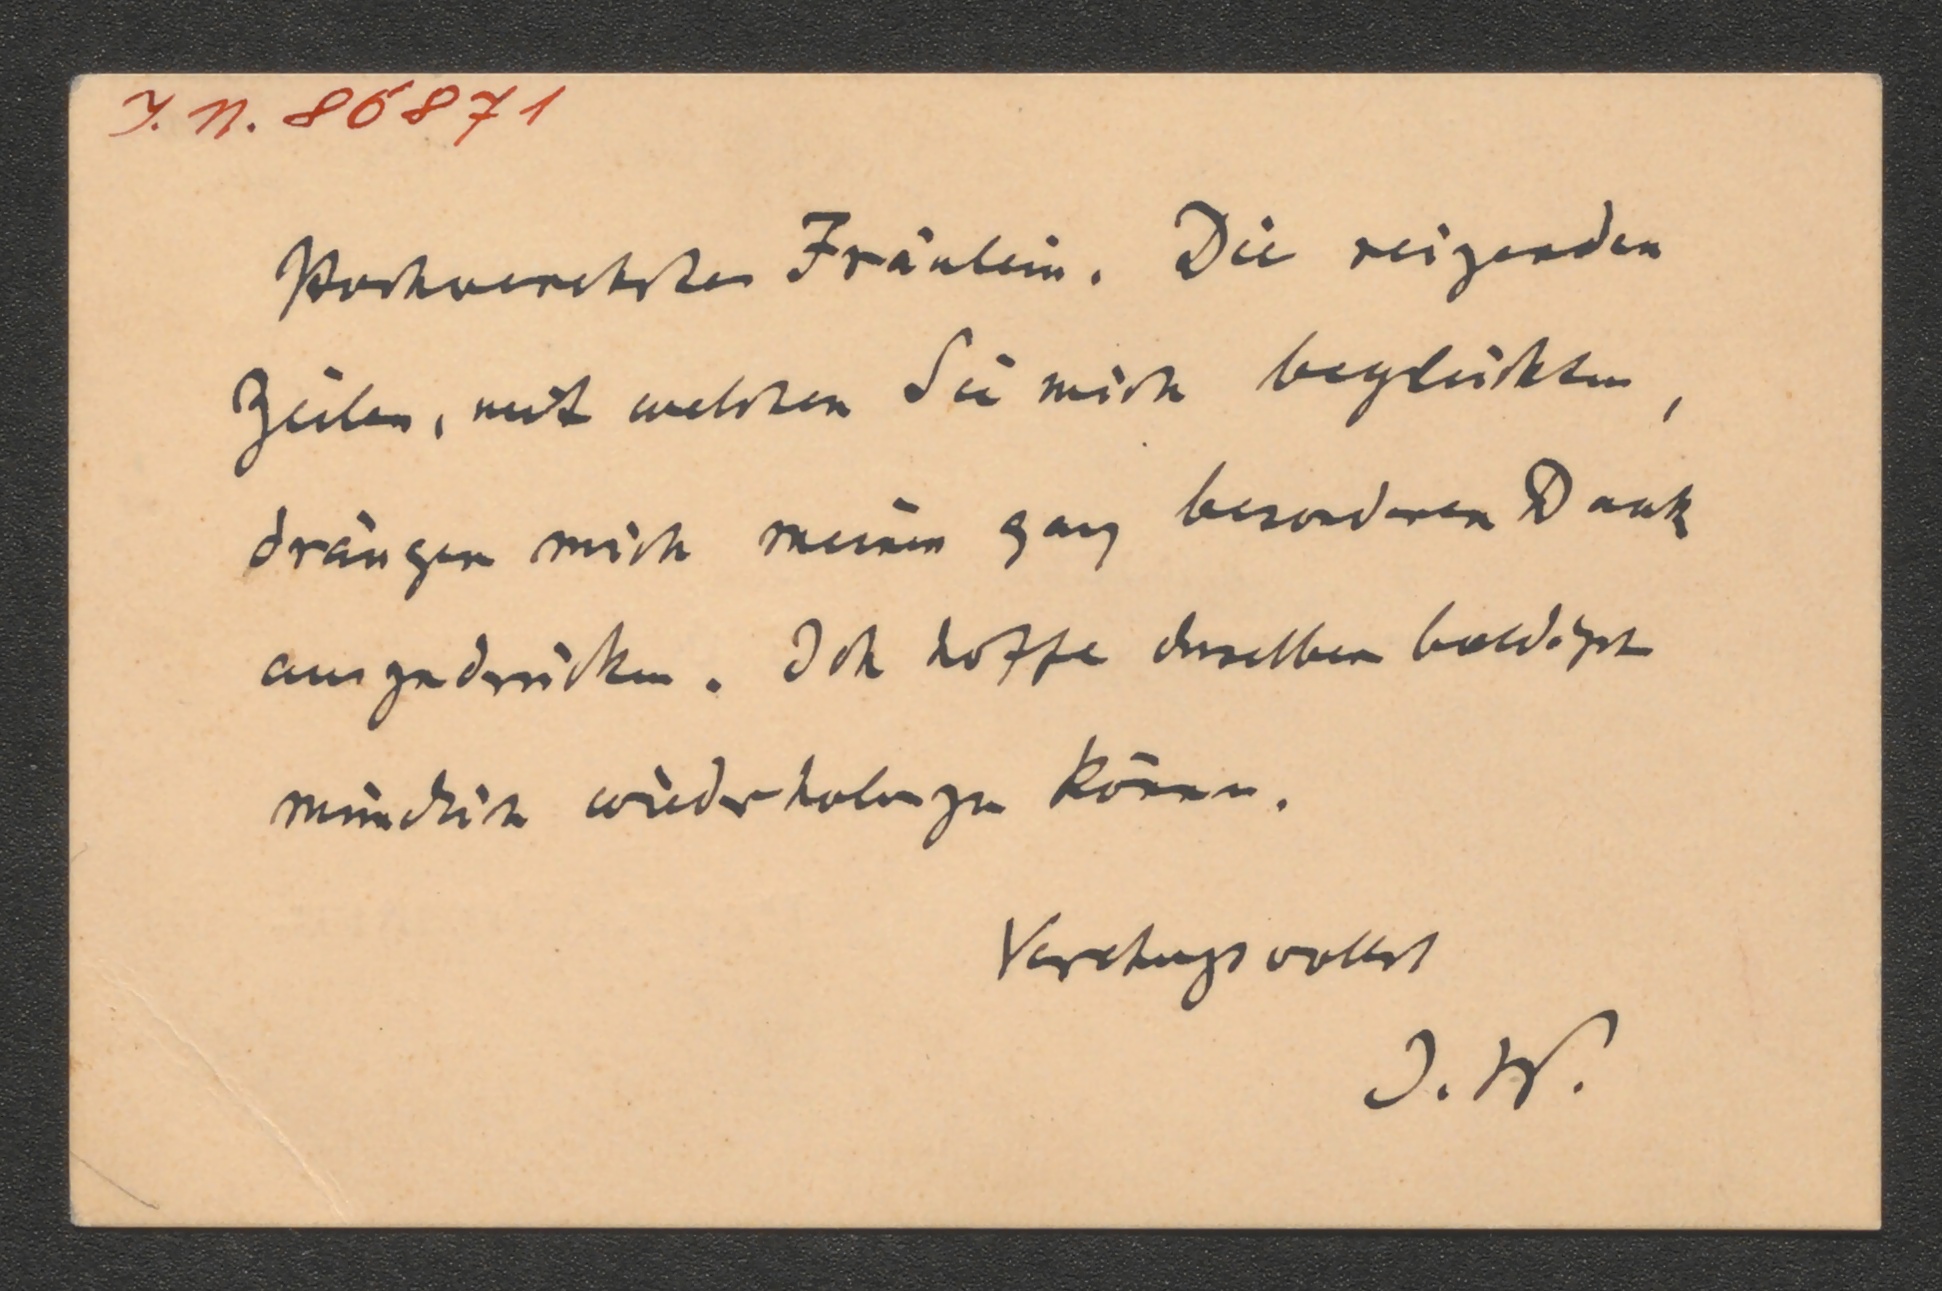 I. N. 86871
Hochverehrtes Fräulein. Die reizenden
Zeilen, mit welchen Sie mich beglückten,
drängen mich meinen ganz besonderen Dank
auszudrücken. Ich hoffe denselben baldigst
mündlich wiederholen zu können.
Verehrungsvollst
J. W.